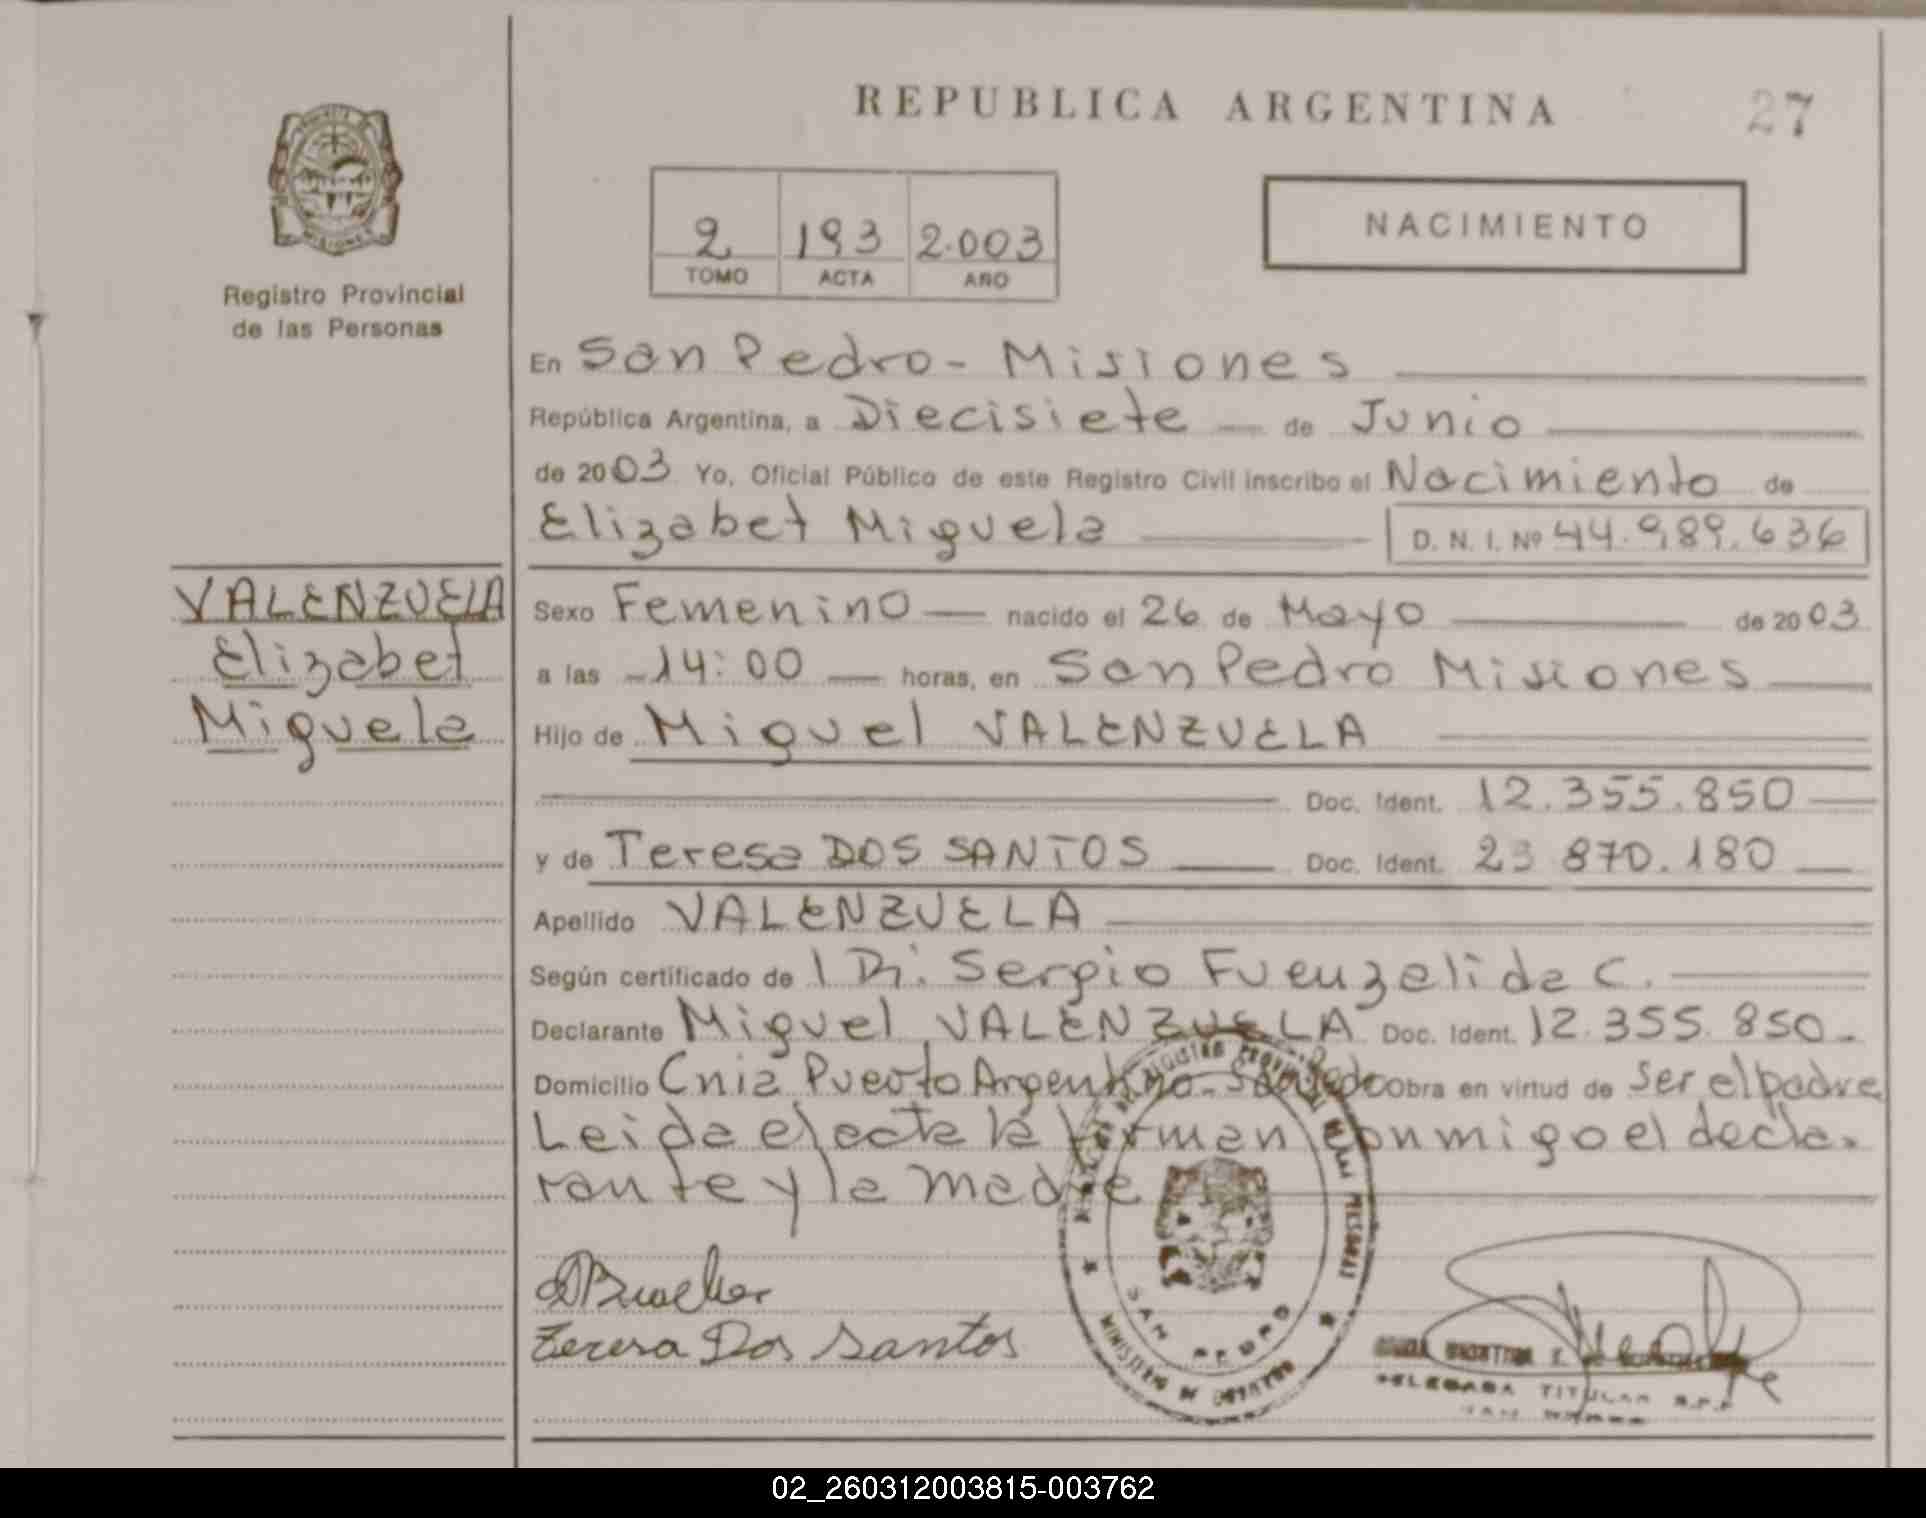 REPUBLICA ARGENTINA
27
MISIONES
Registro Provincial
de las Personas
2 193 2.003
TOMO ACTA AÑO
NACIMIENTO
En San Pedro - Misiones
República Argentina, a Diecisiete de Junio
de 2003 Yo, Oficial Público de este Registro Civil inscribo el Nacimiento de
Elizabet Miguela D. N. I. Nº 44.989.636
VALENZUELA
Elizabet
Miguela
Sexo Femenino nacido el 26 de Mayo de 2003
a las 14:00 horas, en San Pedro Misiones
Hijo de Miguel VALENZUELA
Doc. Ident. 12.355.850
y de Teresa DOS SANTOS Doc. Ident. 23 870.180
Apellido VALENZUELA
Según certificado de Sergio Fuenzelida C.
Declarante Miguel VALENZUELA Doc. Ident. 12.355.850.
Domicilio Cnia Puerto Argentino Obra en virtud de ser el padre
Leida el acta la firman conmigo el decla-
rante y la madre
Teresa Dos Santos
SAN PEDRO
MINISTERIO DE GOBIERNO
DELEGADA TITULAR R.P.P.
02_260312003815-003762